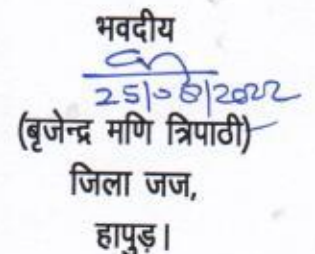 भवदीय
25/08/2022
(बृजेन्द्र मणि त्रिपाठी)
जिला जज,
हापुड़।